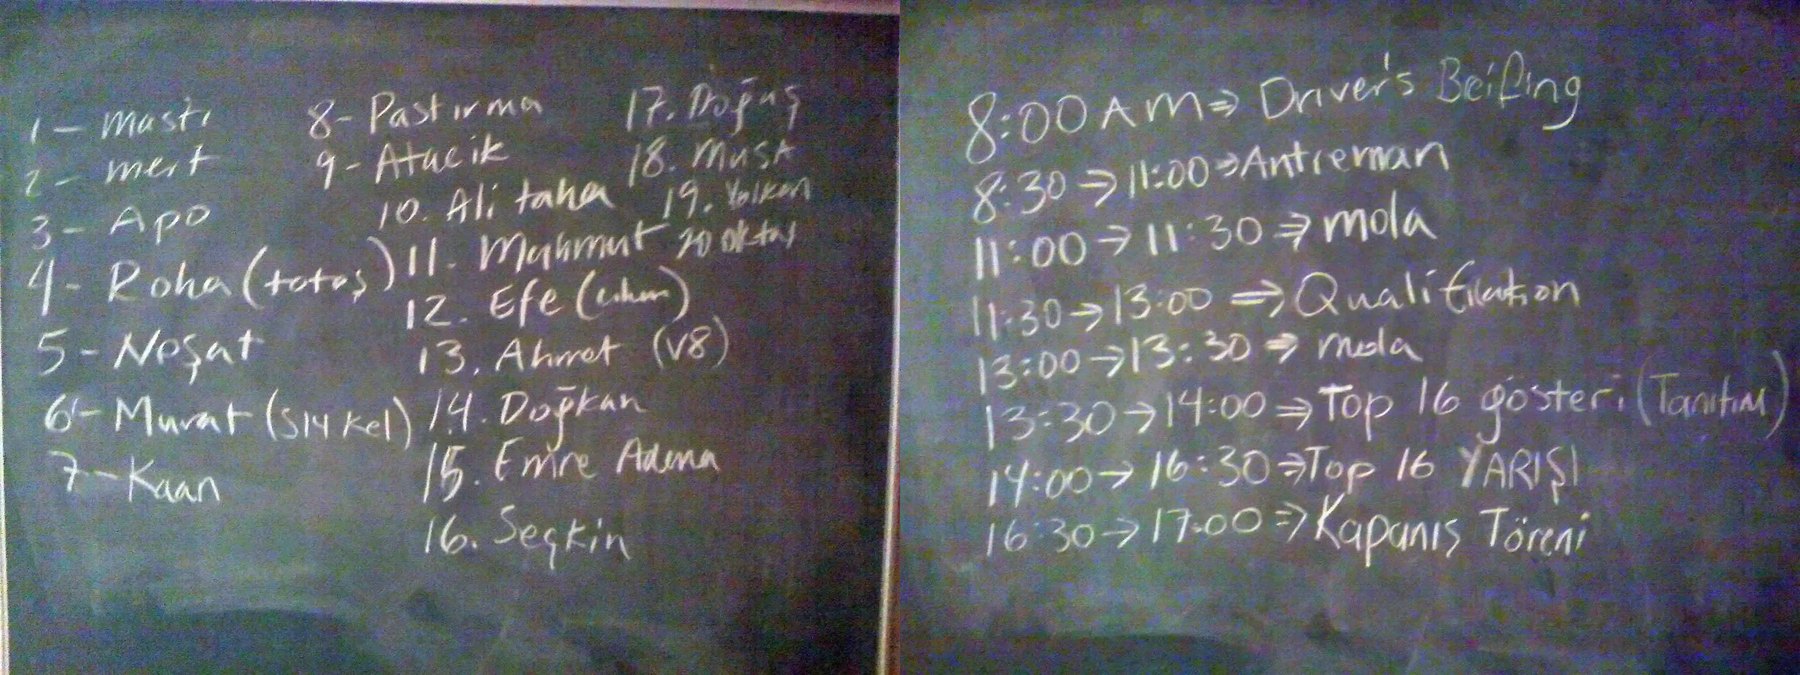 1 - Mastı
2 - mert
3 - Apo
4 - Roha (totoş)
5 - Neşat
6 - Murat (S14 Kel)
7 - Kaan
8 - Pastırma
9 - Atacik
10. Ali taha
11. Mahmut
12. Efe
13. Ahmet (V8)
14. Doğkan
15. Emre Adana
16. Seçkin
17. Doğuş
18. Musa
19. Volkan
20 Oktay
8:00 AM ⇒ Driver's Beifing
8:30 → 11:00 ⇒ Antreman
11:00 → 11:30 ⇒ mola
11:30 → 13:00 ⇒ Qualification
13:00 → 13:30 ⇒ mola
13:30 → 14:00 ⇒ Top 16 gösteri (Tanıtım)
14:00 → 16:30 ⇒ Top 16 YARIŞI
16:30 → 17:00 ⇒ Kapanış Töreni